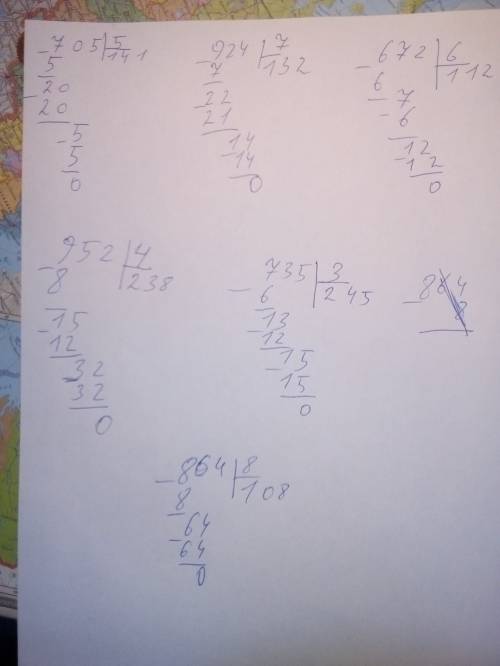 -705|5
5 141
20
-20
-5
5
0
-924|7
7 132
22
21
14
-14
0
-672|6
6 112
7
-6
12
-12
0
-952|4
8 238
15
-12
32
32
0
-735|3
6 245
13
-12
15
-15
0
-864|8
8 108
64
-64
0